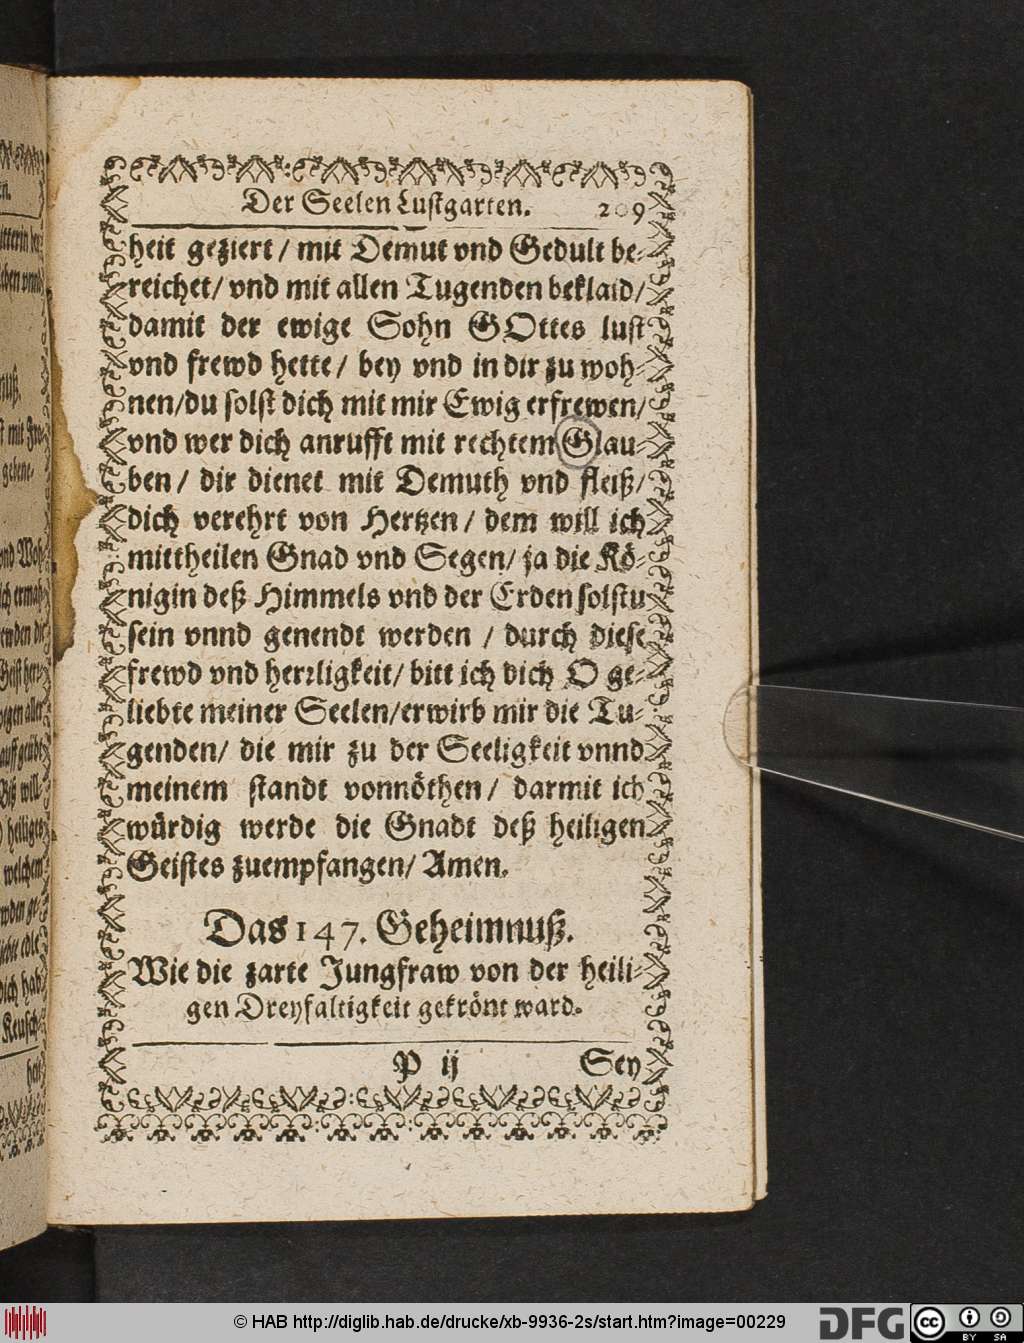 Der Seelen Lustgarten. 209
heit geziert / mit Demut vnd Gedult be-
reichet / vnd mit allen Tugenden beklaid /
damit der ewige Sohn GOttes lust
vnd frewd hette / bey vnd in dir zu woh-
nen / du solst dich mit mir Ewig erfrewen /
vnd wer dich anrufft mit rechtem Glau-
ben / dir dienet mit Demuth vnd fleiß /
dich verehrt von Hertzen / dem will ich
mittheilen Gnad vnd Segen / ja die Kö-
nigin deß Himmels vnd der Erden solstu
sein vnnd genendt werden / durch diese
frewd vnd herrligkeit / bitt ich dich O ge-
liebte meiner Seelen / erwirb mir die Tu-
genden / die mir zu der Seeligkeit vnnd
meinem standt vonnöthen / darmit ich
würdig werde die Gnadt deß heiligen
Geistes zuempfangen / Amen.
Das 147. Geheimnuß.
Wie die zarte Jungfraw von der heili-
gen Dreyfaltigkeit gekrönt ward.
P ij Sey
© HAB http://diglib.hab.de/drucke/xb-9936-2s/start.htm?image=00229
DFG
cc BY SA